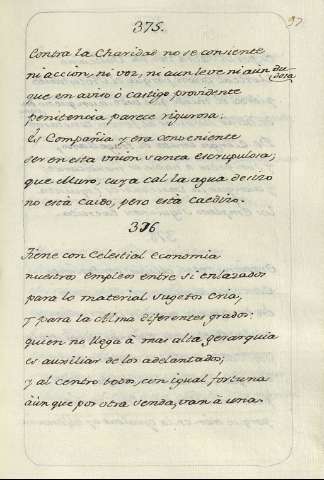 375.
97
Contra la Charidad no se consiente
ni accion, ni voz, ni aun leve ni aùn du-
dosa
que en aviso ò castigo providente
penitencia parece rigurosa:
Es Compañia y era conveniente
ser en esta union santa escrupulosa;
que Muro, cuya cal la agua desizo
no està caido, pero està caedizo.
376
Tiene con Celestial economia
nuestros empleos entre si enlazados
para lo material sugetos cria,
y para la Alma diferentes grados:
quien no llega à mas alta gerarquia
es auxiliar de los adelantados;
y al centro todos, con igual fortuna
aùn que por otra senda, van à una.